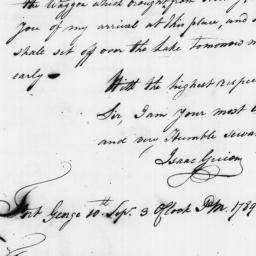 the Waggon which brought from
you of my arrival at this place, and
shall set off over the Lake tomorrow
early
With the highest Respect
Sir, I am your most
and very Humble Serva
Isaac Guion
Fort George 10th Sep. 3 O'Clock P.M. 1789